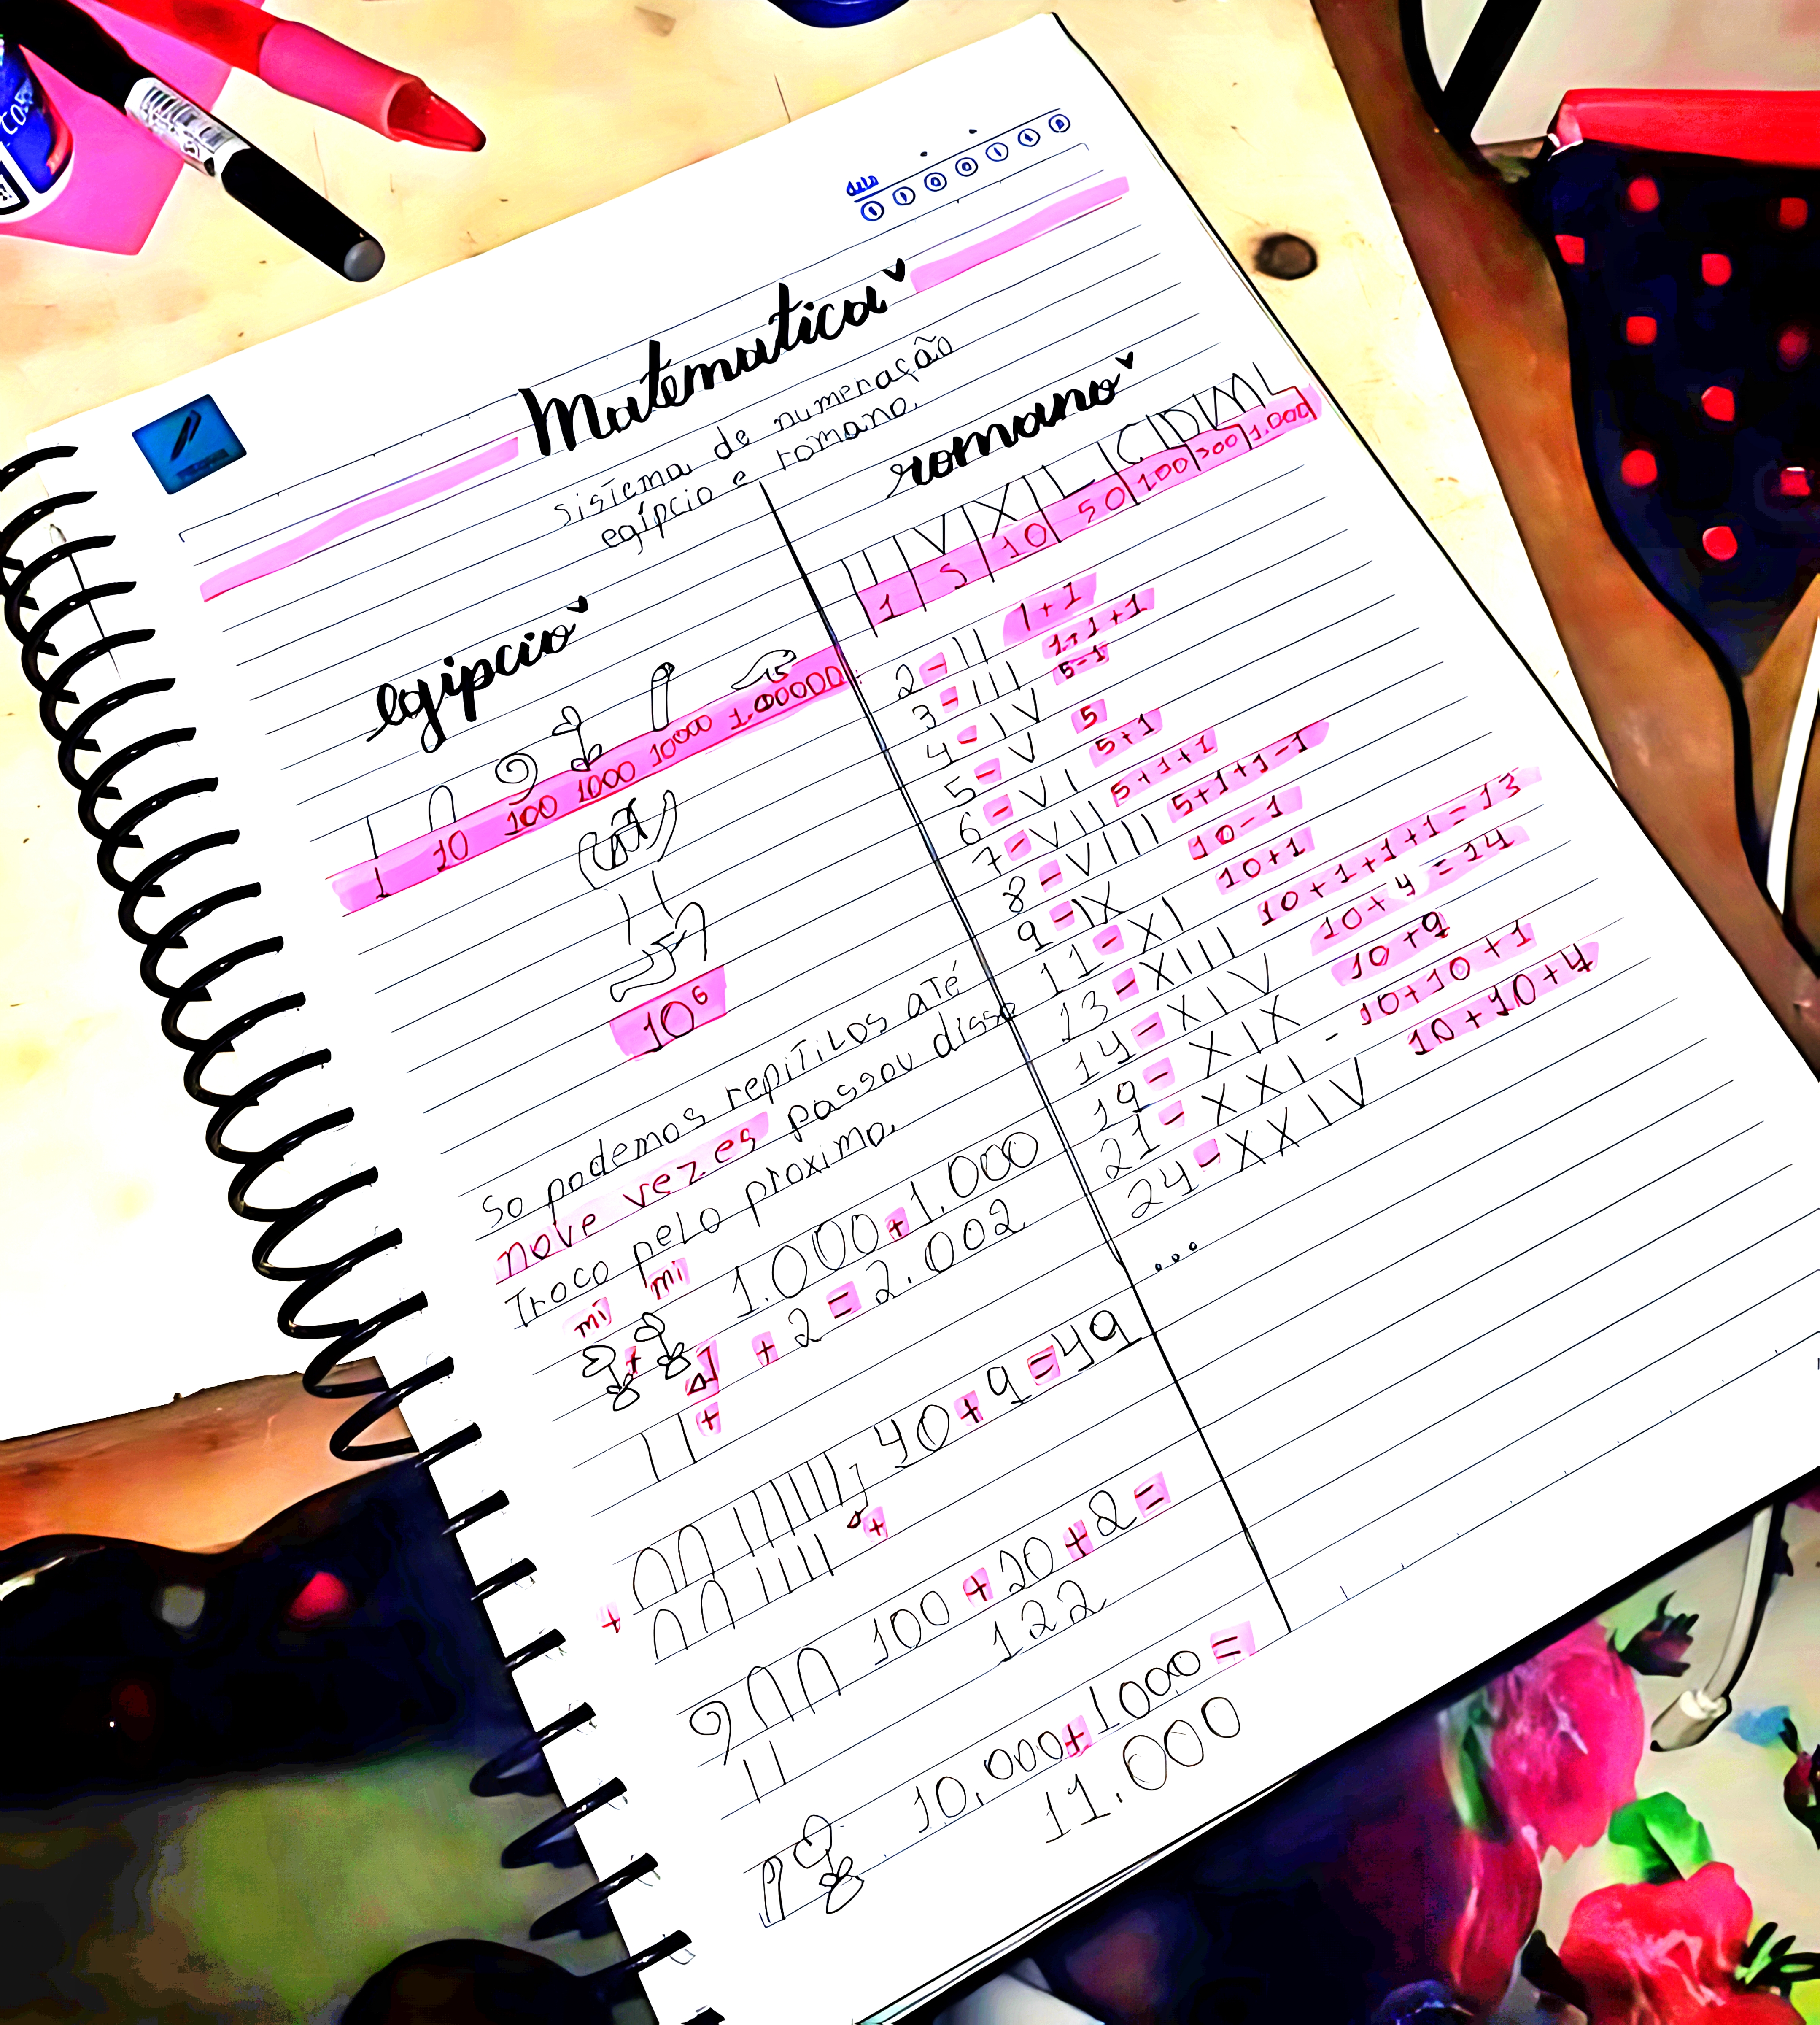 Matemática
Sistema de numeração
egípcio e romano.
egípcio
1 10 100 1000 10000 1.00000
10⁶
So podemos repitilos até
nove vezes passou disso
Troco pelo proximo.
mi mi
1.000+1.000
+ 2 = 2.002
40+9=49
100+20+2=
122
10.000+1000=
11.000
romano
I V X L C D M
1 5 10 50 100 500 1.000
2-II 1+1
3-III 1+1+1
4-IV 5-1
5-V 5
6-VI 5+1
7-VII 5+1+1
8-VIII 5+1+1-1
9-IX 10-1
11-XI 10+1
13-XIII 10+1+1+1=13
14-XIV 10+4=14
19-XIX 10+9
21-XXI-10+10+1
24-XXIV 10+10+4
...